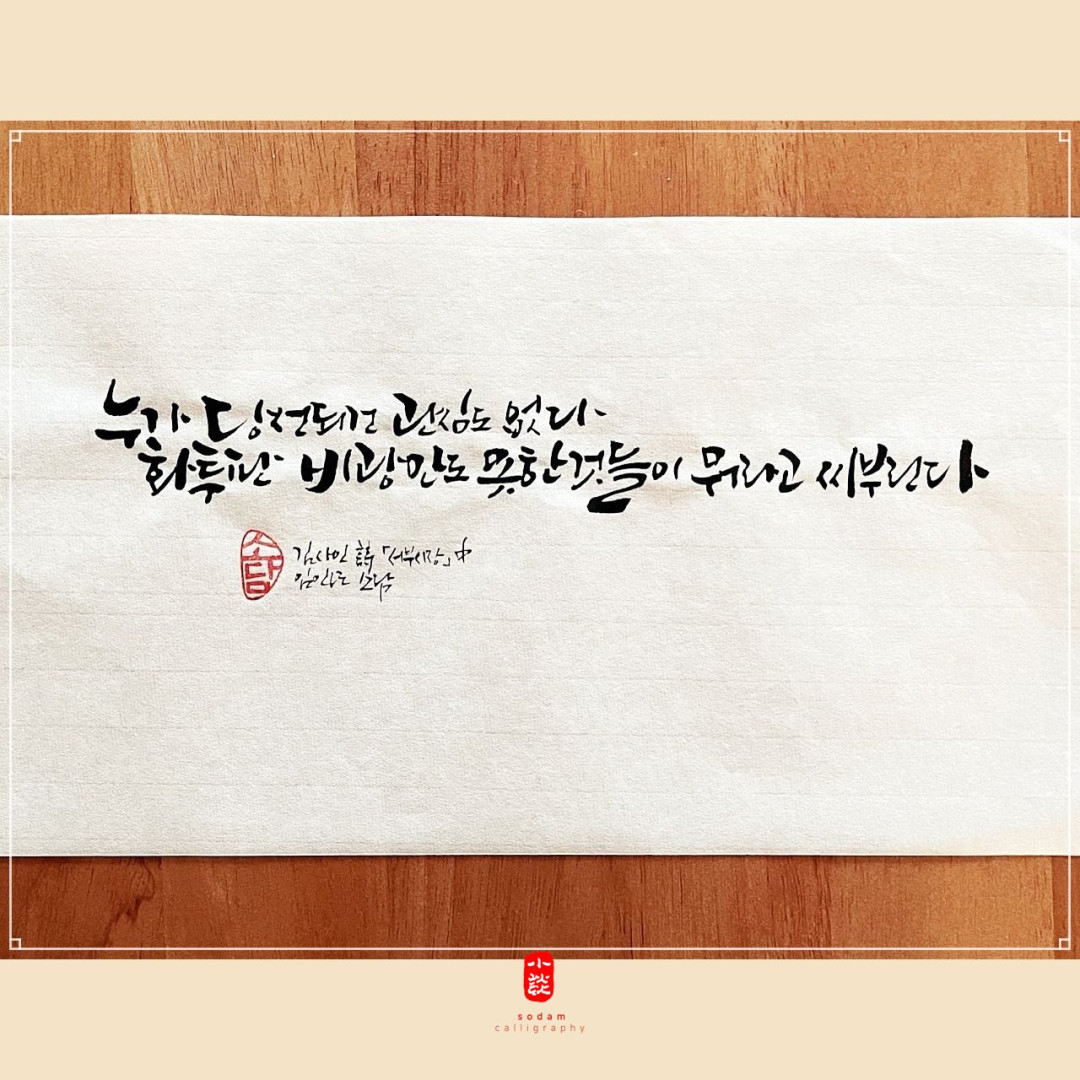 누가 당선되건 관심도 없다
화투판 비광만도 못한 것들이 뭐라고 씨부린다
소담
김사인 詩 「서부시장」 中
임인年 소담
小談
sodam
calligraphy